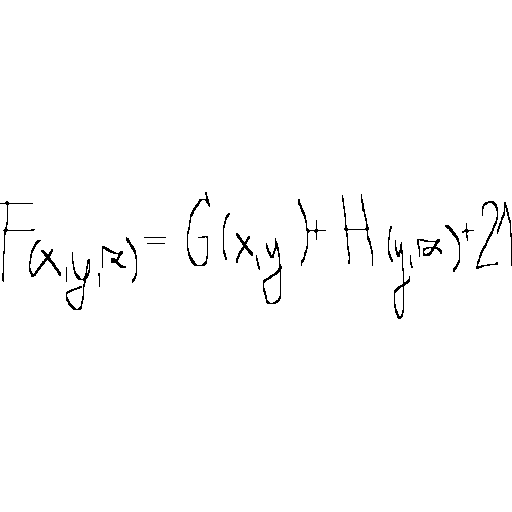 F(x,y,z) = G(x,y) + H(y,z) + 21